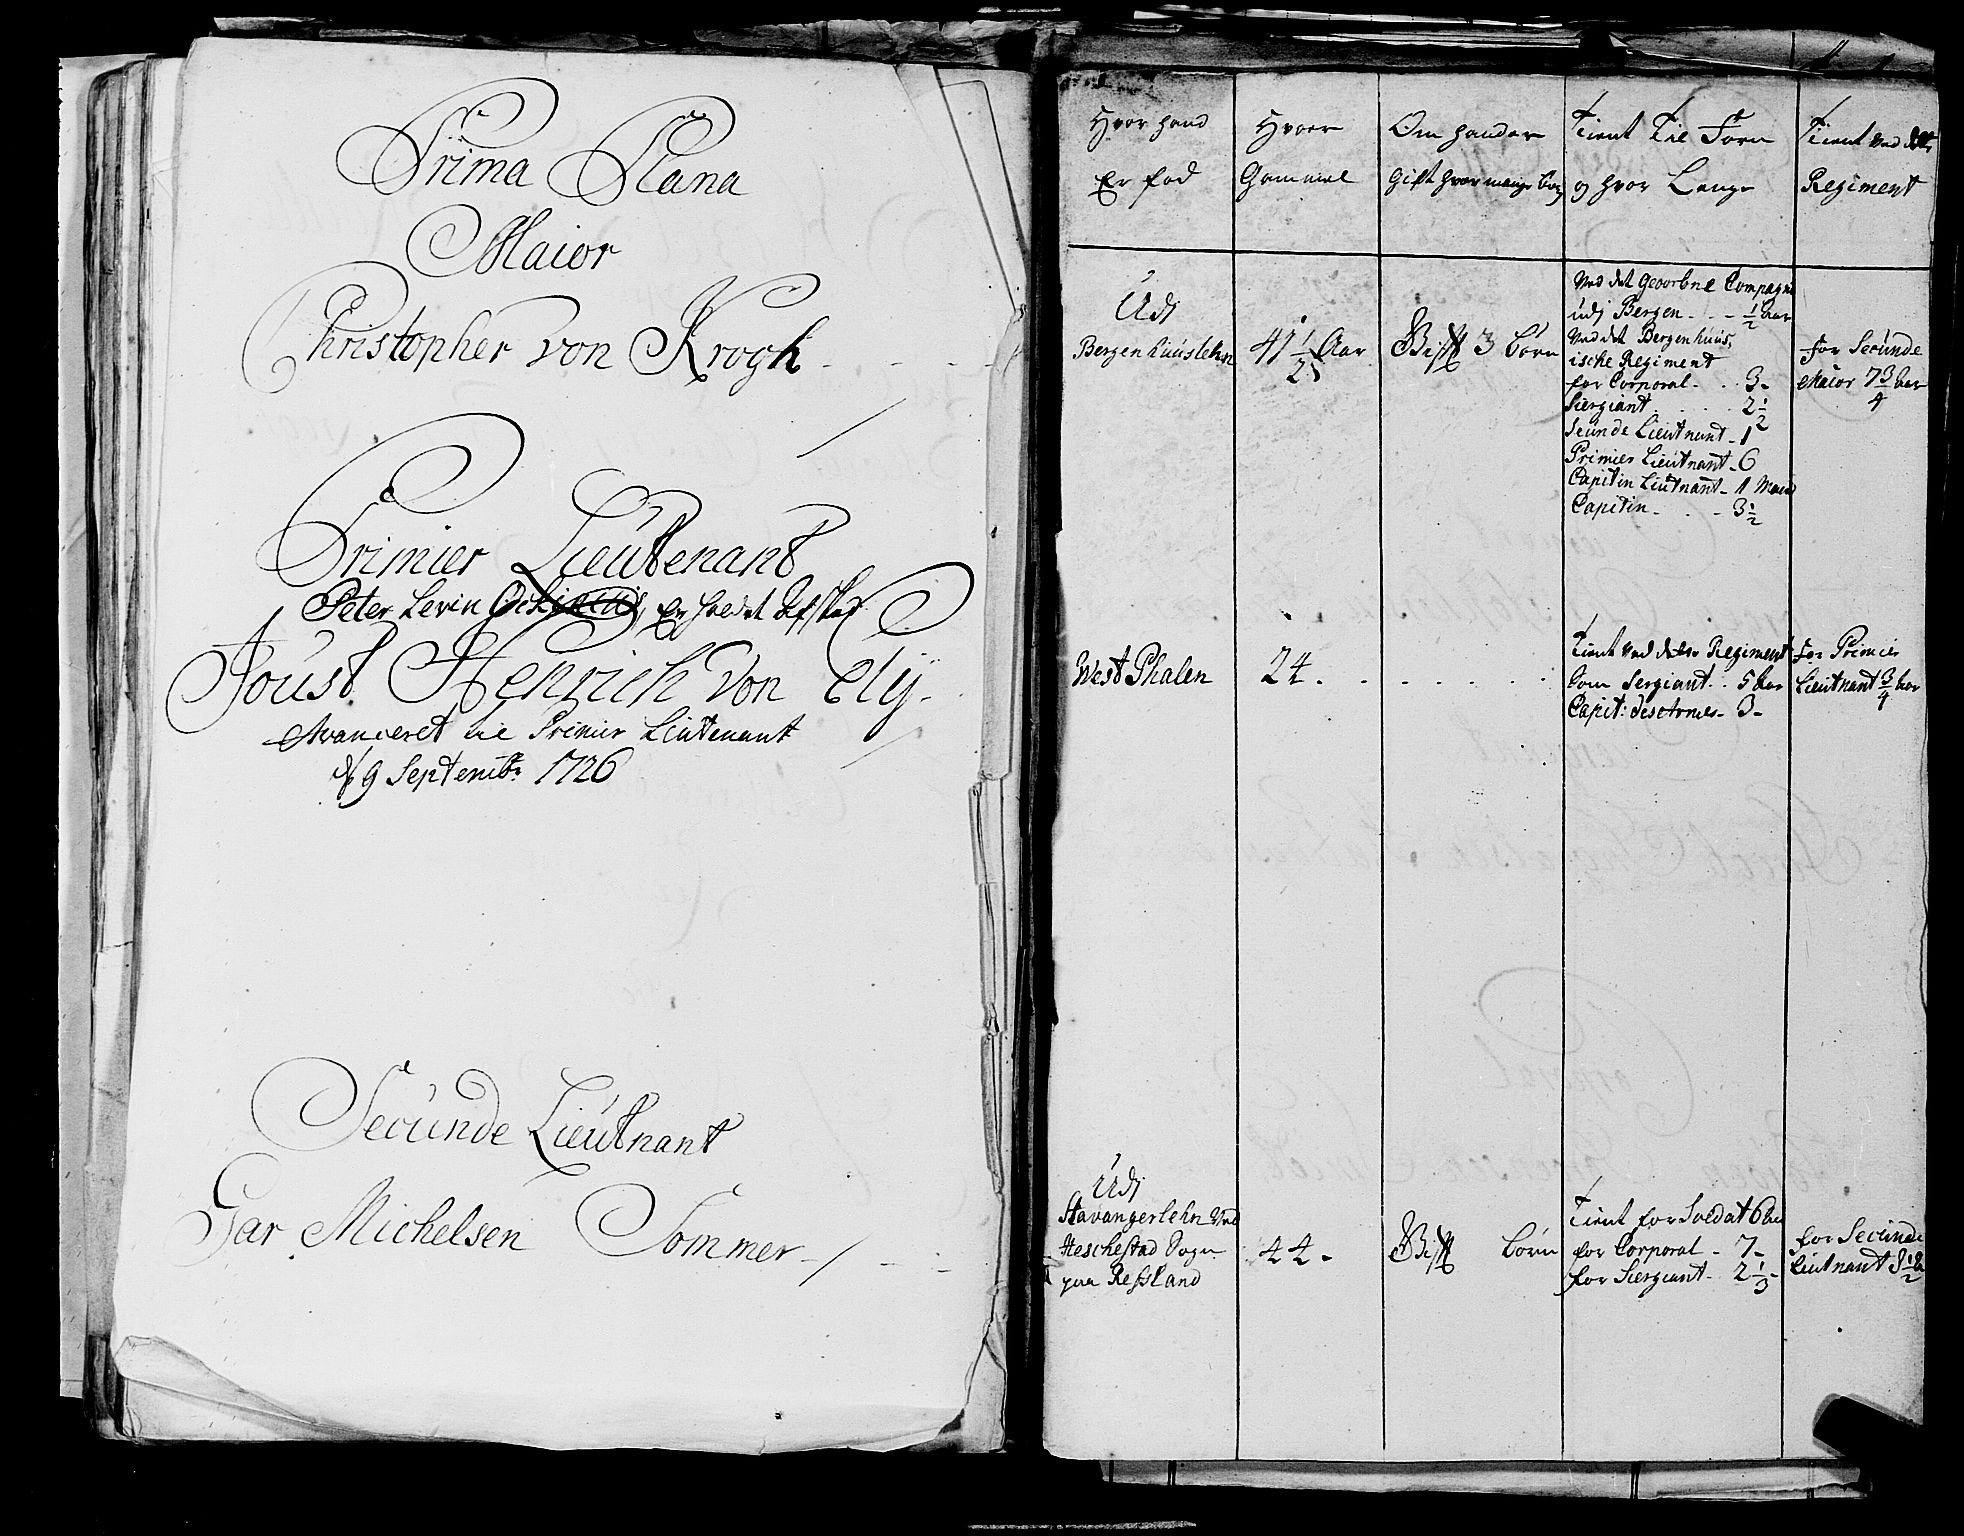 Prima Plana
Maior
Christopher von Krogh
Primier Lieutenant
Peter Levin er
Joust Henrich von Ely
Avanceret til Primier Lieutenant
d 9 Septembr 1726
Secunde Lieutnant
Gar Michelsen Sommer
Hvor hand
Er fød
Hvor
Gammel
Om hand er
Gift hvor mange børn
Tient Til Forn
og hvor Lenge
Tient ved dette
Regiment
Udj
Bergenhuuslehn
41 1/2 Aar
Gift 3 børn
Ved det Geworbne Compagni
udj Bergen 1/2 aar
Ved det Bergenhuus,
ische Regiment
for Corporal 3
Siergiant 2 1/2
Secunde Lieutnant 1
Primier Lieutnant 6
Capitin Liutnant 1 Maan
Capitin 3 1/2
for Secunde
Maior 7 3/4 aar
West Phalen
24
Tient ved dette Regiment
som Sergiant 5 aar
Capit: desarmes 3
for Primier
Lieutnant 3/4 aar
Udj
Stavangerlehn ved
Heschestad Sogn
paa Refsland
44
Gift børn
Tient for Soldat 6 aar
for Corporal 7
for Siergiant 2 1/3
for Secunde
Lieutnant 3 1/2